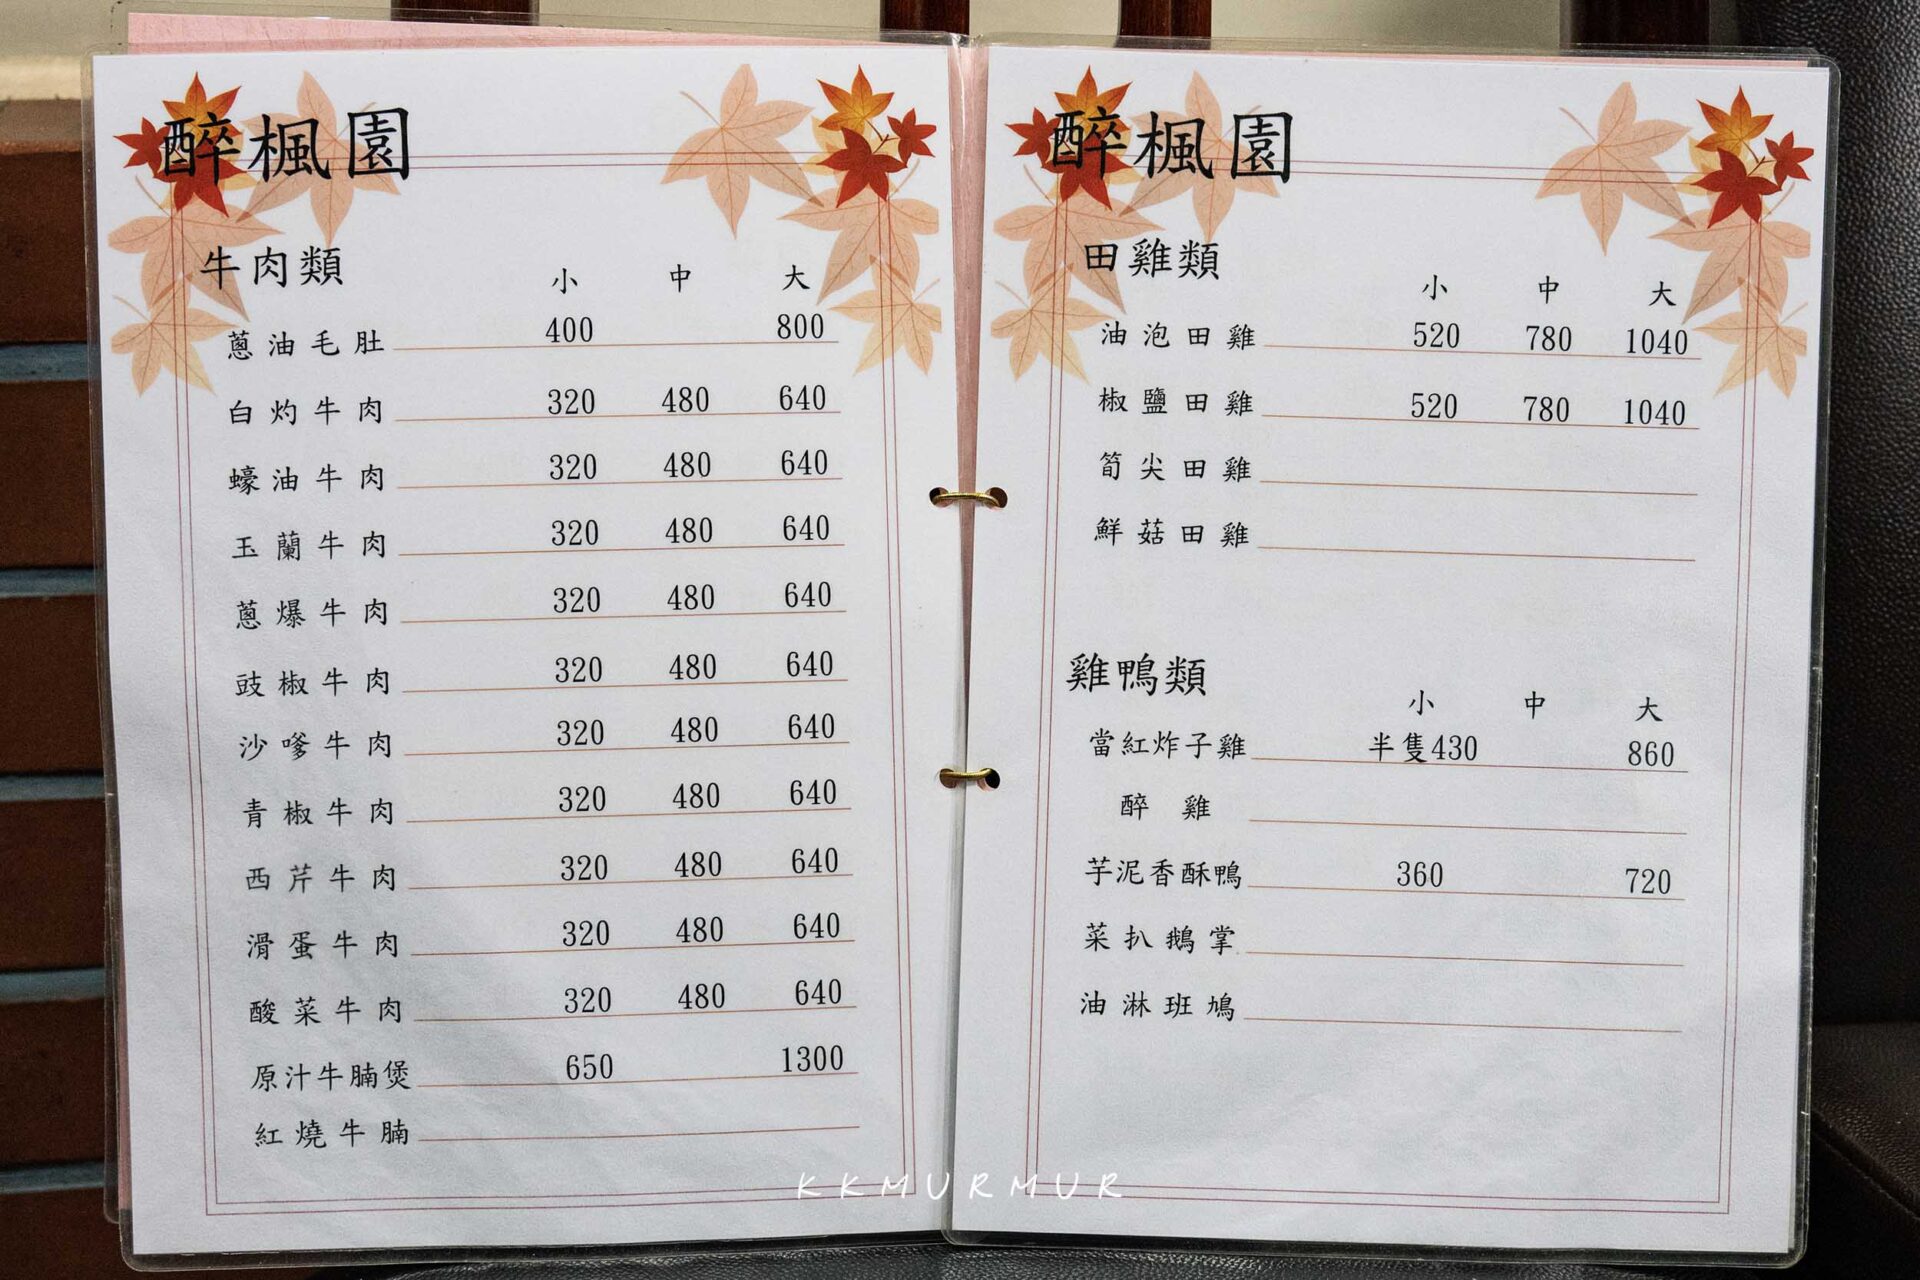 醉楓園
牛肉類 小 中 大
蔥油毛肚 400 800
白灼牛肉 320 480 640
蠔油牛肉 320 480 640
玉蘭牛肉 320 480 640
蔥爆牛肉 320 480 640
豉椒牛肉 320 480 640
沙嗲牛肉 320 480 640
青椒牛肉 320 480 640
西芹牛肉 320 480 640
滑蛋牛肉 320 480 640
酸菜牛肉 320 480 640
原汁牛腩煲 650 1300
紅燒牛腩
醉楓園
田雞類 小 中 大
油泡田雞 520 780 1040
椒鹽田雞 520 780 1040
筍尖田雞
鮮菇田雞
雞鴨類 小 中 大
當紅炸子雞 半隻430 860
醉雞
芋泥香酥鴨 360 720
菜扒鵝掌
油淋班鳩
KKMURMUR